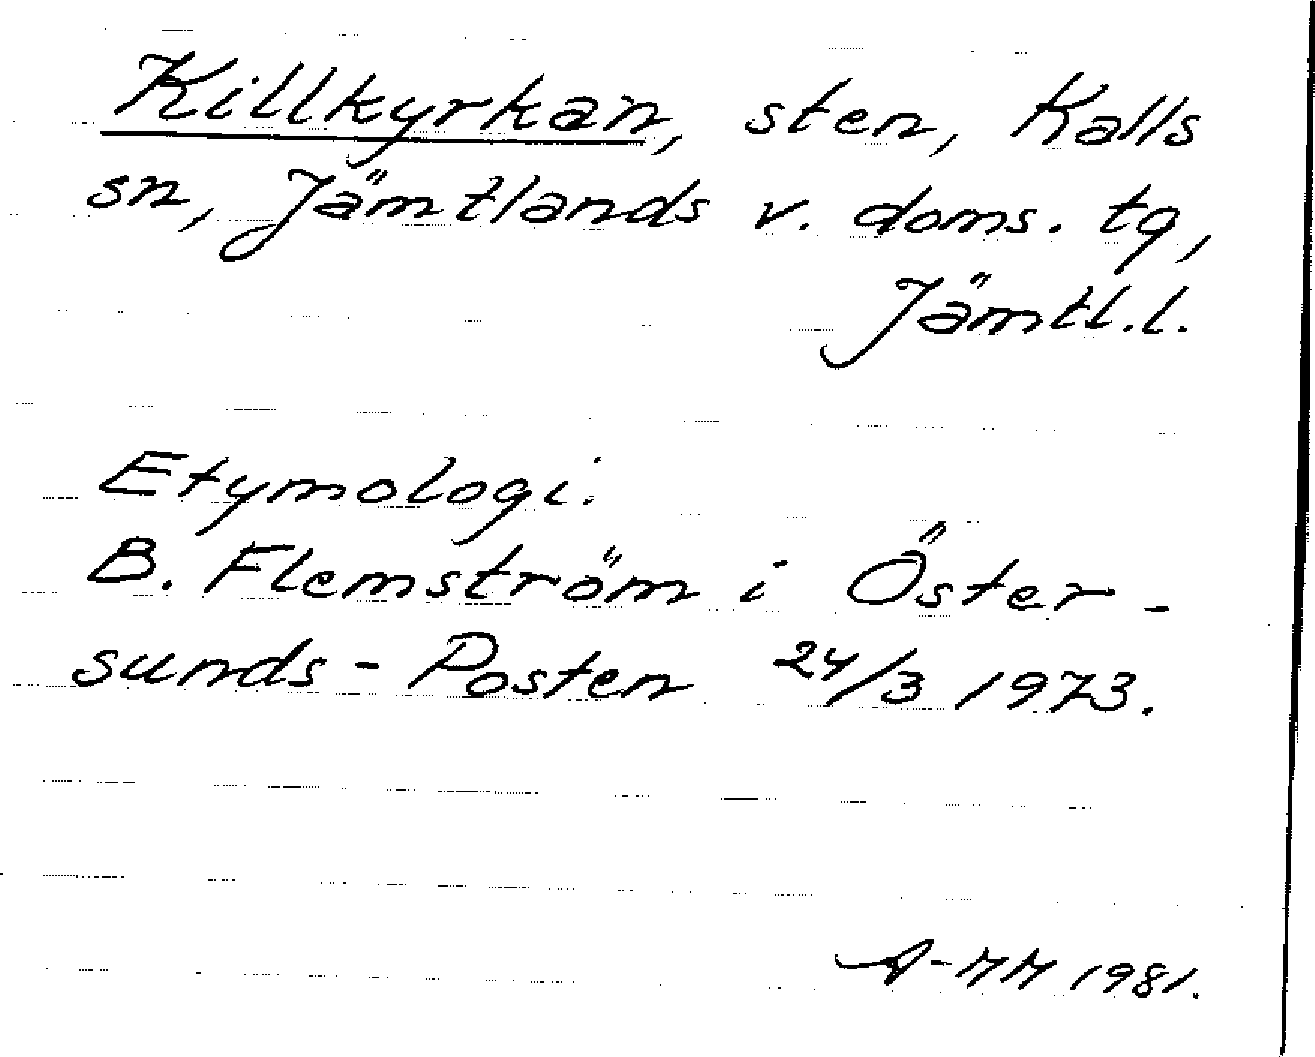 Killkyrkan, sten, Kalls
sn, Jämtlands v. doms. tg,
Jämtl.l.
Etymologi.
B. Flemström i Öster-
sunds-Posten 24/3 1973.
A-MM 1981.